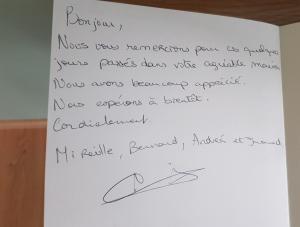 Bonjour,
Nous vous remercions pour ces quelques
jours passés dans votre agréable maison
Nous avons beaucoup apprécié.
Nous espérons à bientôt.
Cordialement
Mireille, Bernard, André et